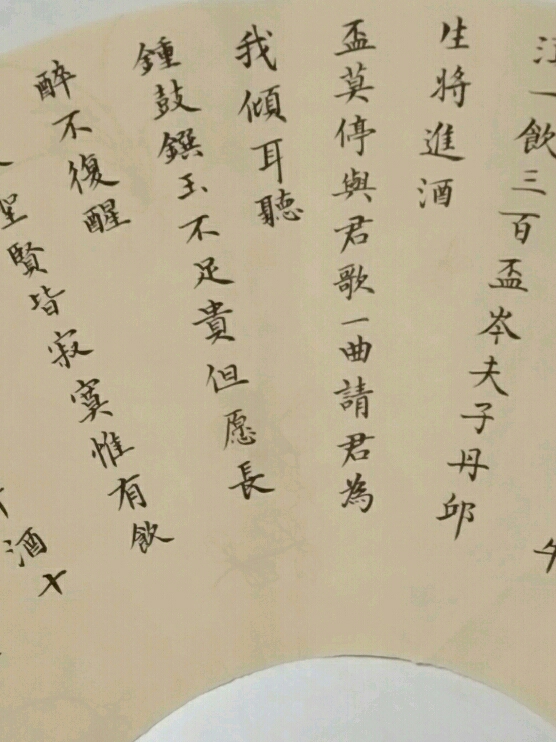 一飲三百盃岑夫子丹邱
生將進酒
盃莫停與君歌一曲請君為
我傾耳聽
鍾鼓饌玉不足貴但愿長
醉不復醒
聖賢皆寂寞惟有飲
酒十